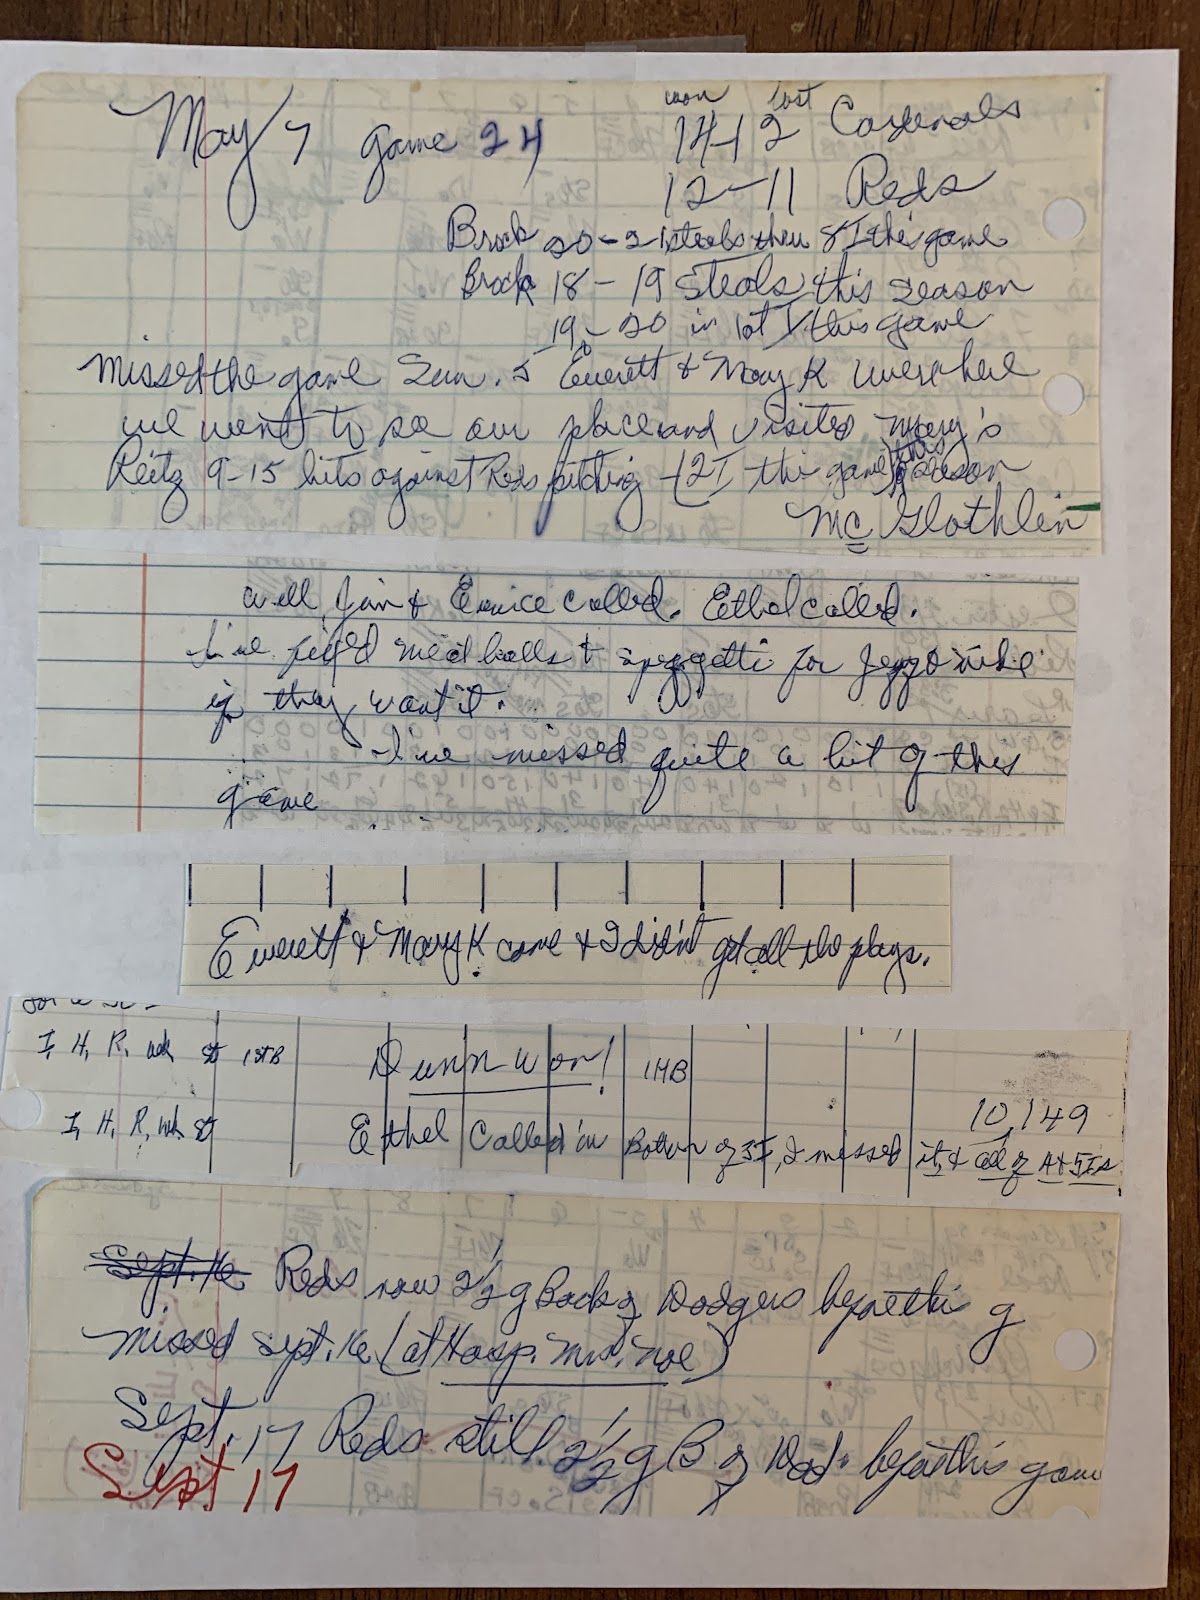 May 7 game 24
won lost
14-12 Cardenals
12-11 Reds
Brock 20-21 steals thru 8 I the game
Brock 18-19 steals this season
19-20 in 1st I this game
missed the game Sun. 5 Everett & Mary K were here
we went to see our place and visited Mary's
Reitz 9-15 hits against Reds pitching - (2 I the game) this season
McGlothlin
well Jim & Eunice called. Ethel called.
I've fixed meat balls & speggetti for Jeff & Mike
if they want it.
I've missed quite a bit of this
game
Everett & Mary K came & I didn't get all the plays.
I, H, R, wk st 1st B Dunn won! 1HB
10,149
I, H, R, wk st Ethel Called in Bottom of 3 I, I missed it, & all of 4 & 5 I s
Sept. 16 Reds now 2 1/2 g Back of Dodgers before this g
missed Sept. 16 (at Hosp. Mrs. Noe)
Sept. 17 Reds still 2 1/2 g B of Dod. before this game
Sept 17